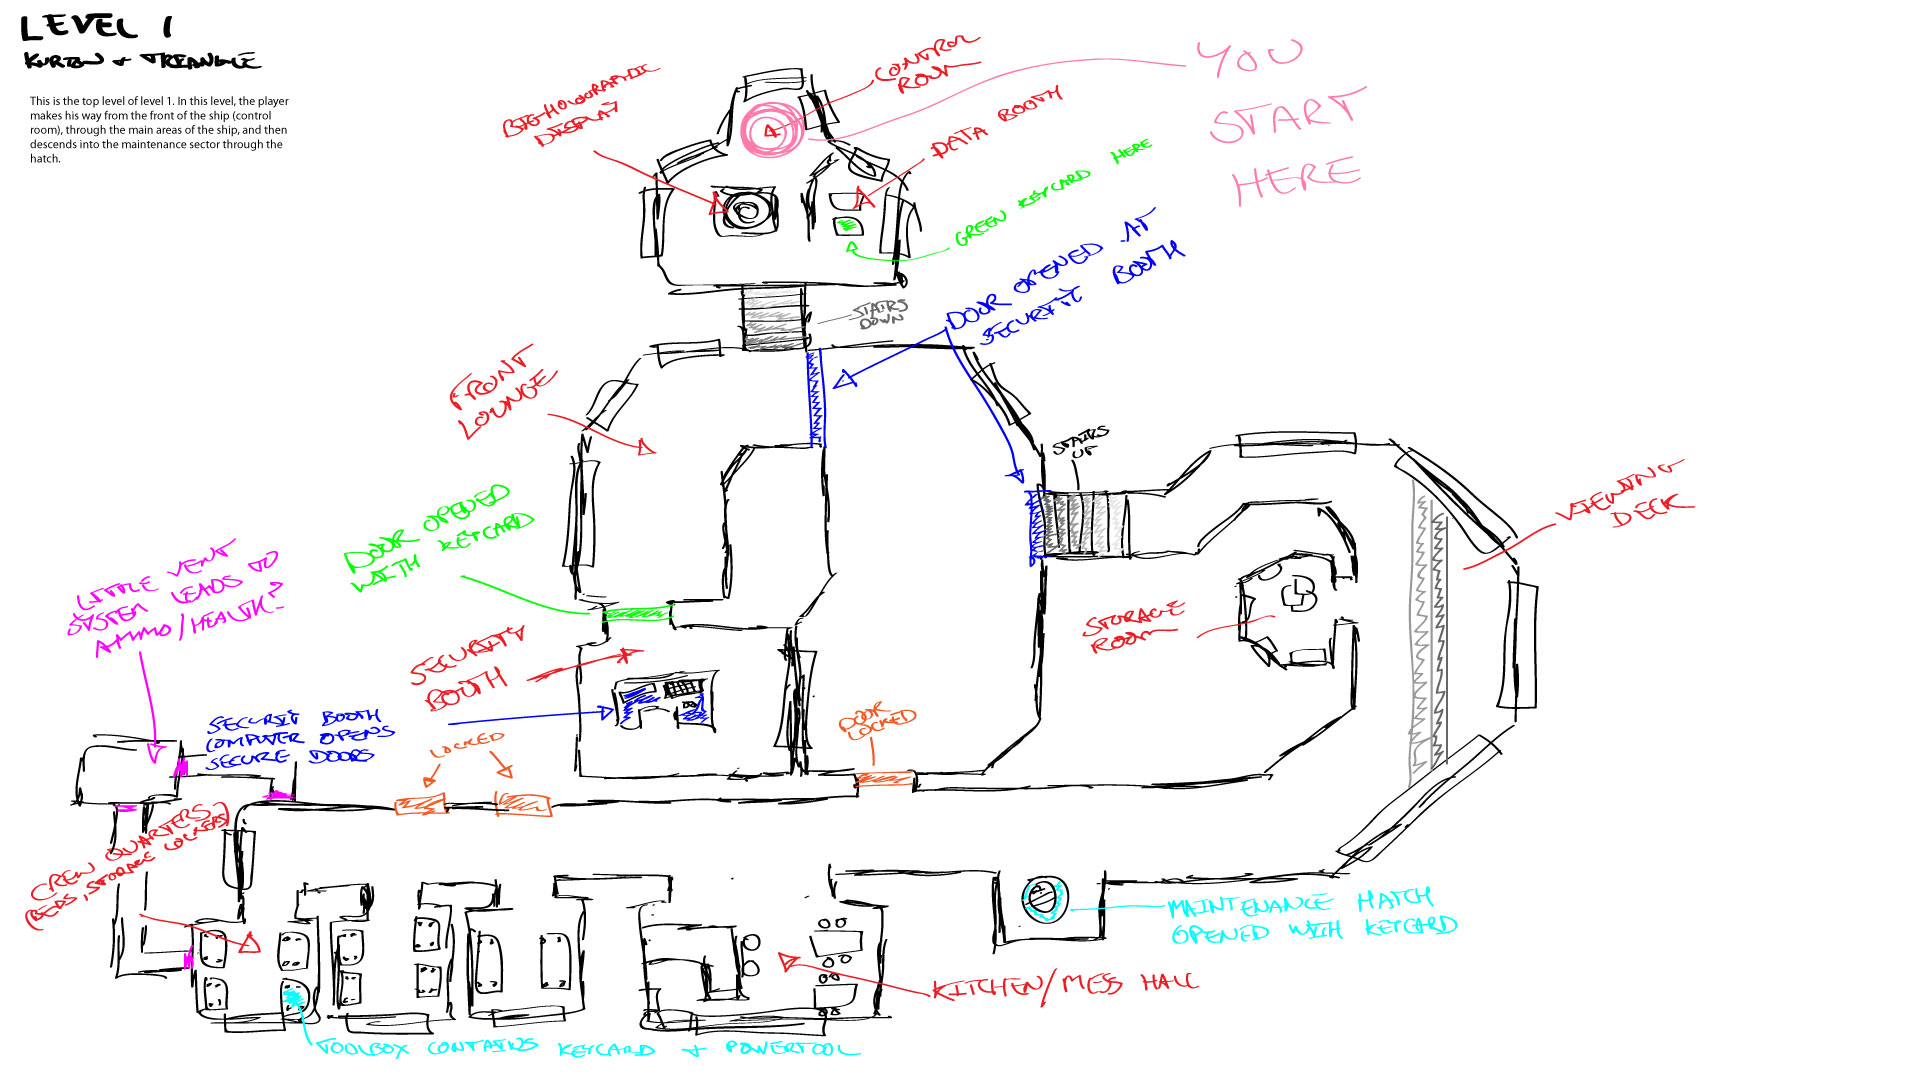 LEVEL 1
KURTON + TRIANGLE
This is the top level of level 1. In this level, the player
makes his way from the front of the ship (control
room), through the main areas of the ship, and then
descends into the maintenance sector through the
hatch.
BIG HOLOGRAPHIC
DISPLAY
CONTROL
ROOM
YOU
START
HERE
DATA BOOTH
GREEN KEYCARD HERE
DOOR OPENED AT
SECURITY BOOTH
STAIRS
DOWN
FRONT
LOUNGE
STAIRS
UP
VIEWING
DECK
DOOR OPENED
WITH KEYCARD
LITTLE VENT
SYSTEM LEADS TO
AMMO/HEALTH?
STORAGE
ROOM
SECURITY
BOOTH
SECURIT BOOTH
COMPUTER OPENS
SECURE DOORS
LOCKED
DOOR
LOCKED
CREW QUARTERS
(BEDS, STORAGE LOCKERS)
MAINTENANCE HATCH
OPENED WITH KEYCARD
KITCHEN/MESS HALL
TOOLBOX CONTAINS KEYCARD + POWERTOOL